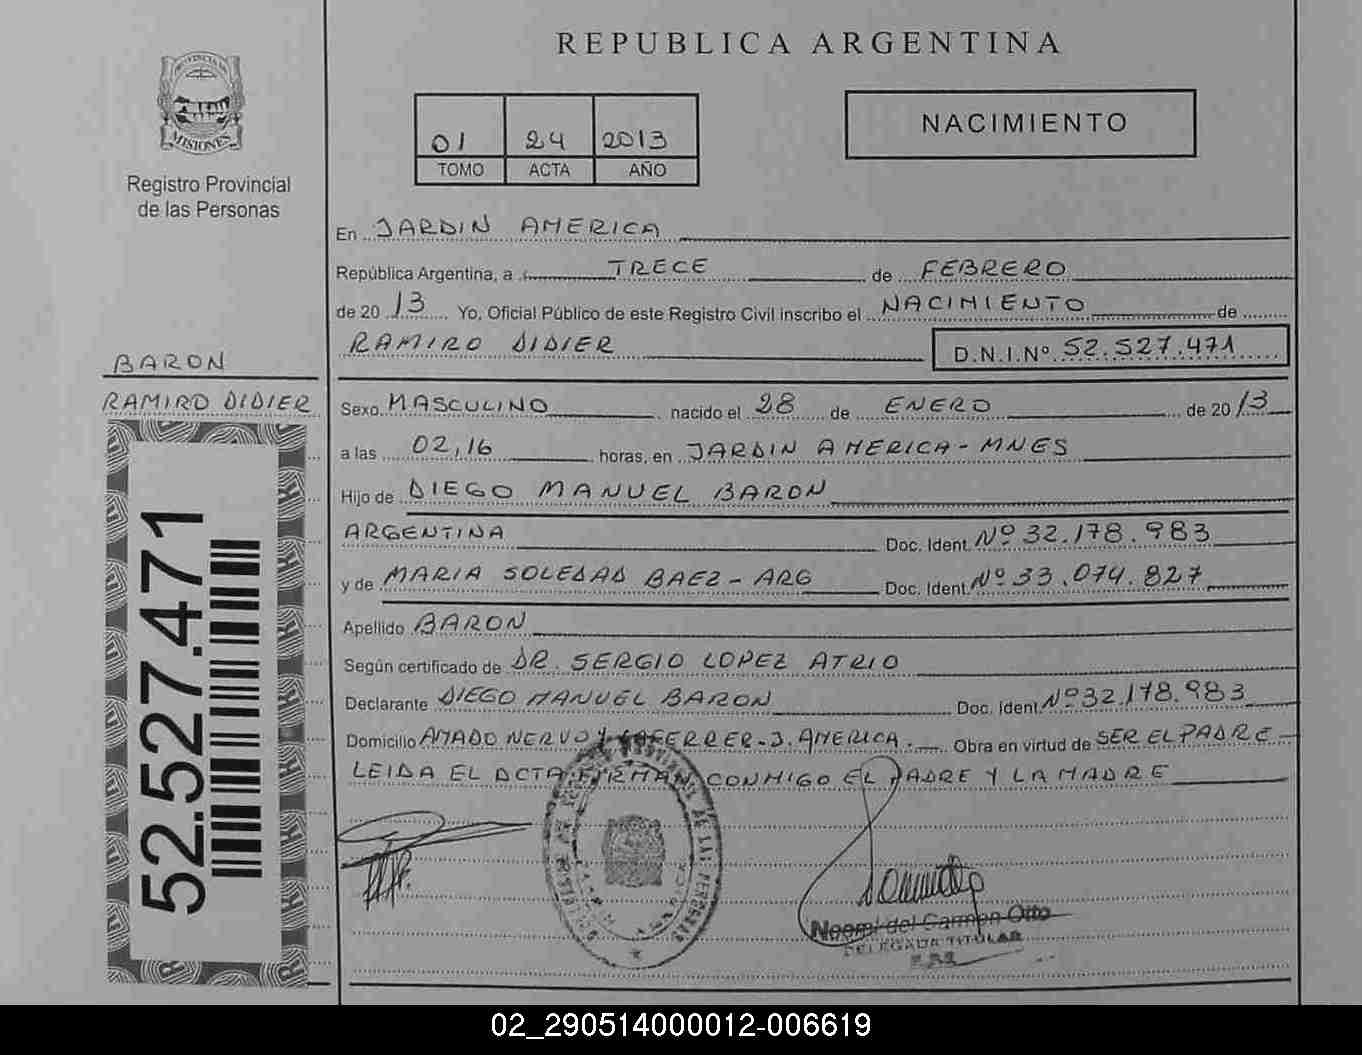 REPUBLICA ARGENTINA
PROVINCIA DE
MISIONES
Registro Provincial
de las Personas
01 24 2013
TOMO ACTA AÑO
NACIMIENTO
En JARDIN AMERICA
República Argentina, a TRECE de FEBRERO
de 2013 Yo, Oficial Público de este Registro Civil inscribo el NACIMIENTO de
RAMIRO DIDIER D.N.I.Nº 52.527.471
BARON
RAMIRO DIDIER
52.527.471
Sexo MASCULINO nacido el 28 de ENERO de 2013
a las 02,16 horas, en JARDIN AMERICA-MNES
Hijo de DIEGO MANUEL BARON
ARGENTINA Doc. Ident. Nº 32.178.983
y de MARIA SOLEDAD BAEZ - ARG Doc. Ident. Nº 33.074.827
Apellido BARON
Según certificado de DR. SERGIO LOPEZ ATRIO
Declarante DIEGO MANUEL BARON Doc. Ident. Nº 32.178.983
Domicilio AMADO NERVO Y LAFERRER-J. AMERICA. Obra en virtud de SER EL PADRE-
LEIDA EL ACTA FIRMAN CONMIGO EL PADRE Y LA MADRE
PROVINCIAL DE LAS PERSONAS
Noemi del Carmen Otto
DELEGADA TITULAR
02_290514000012-006619